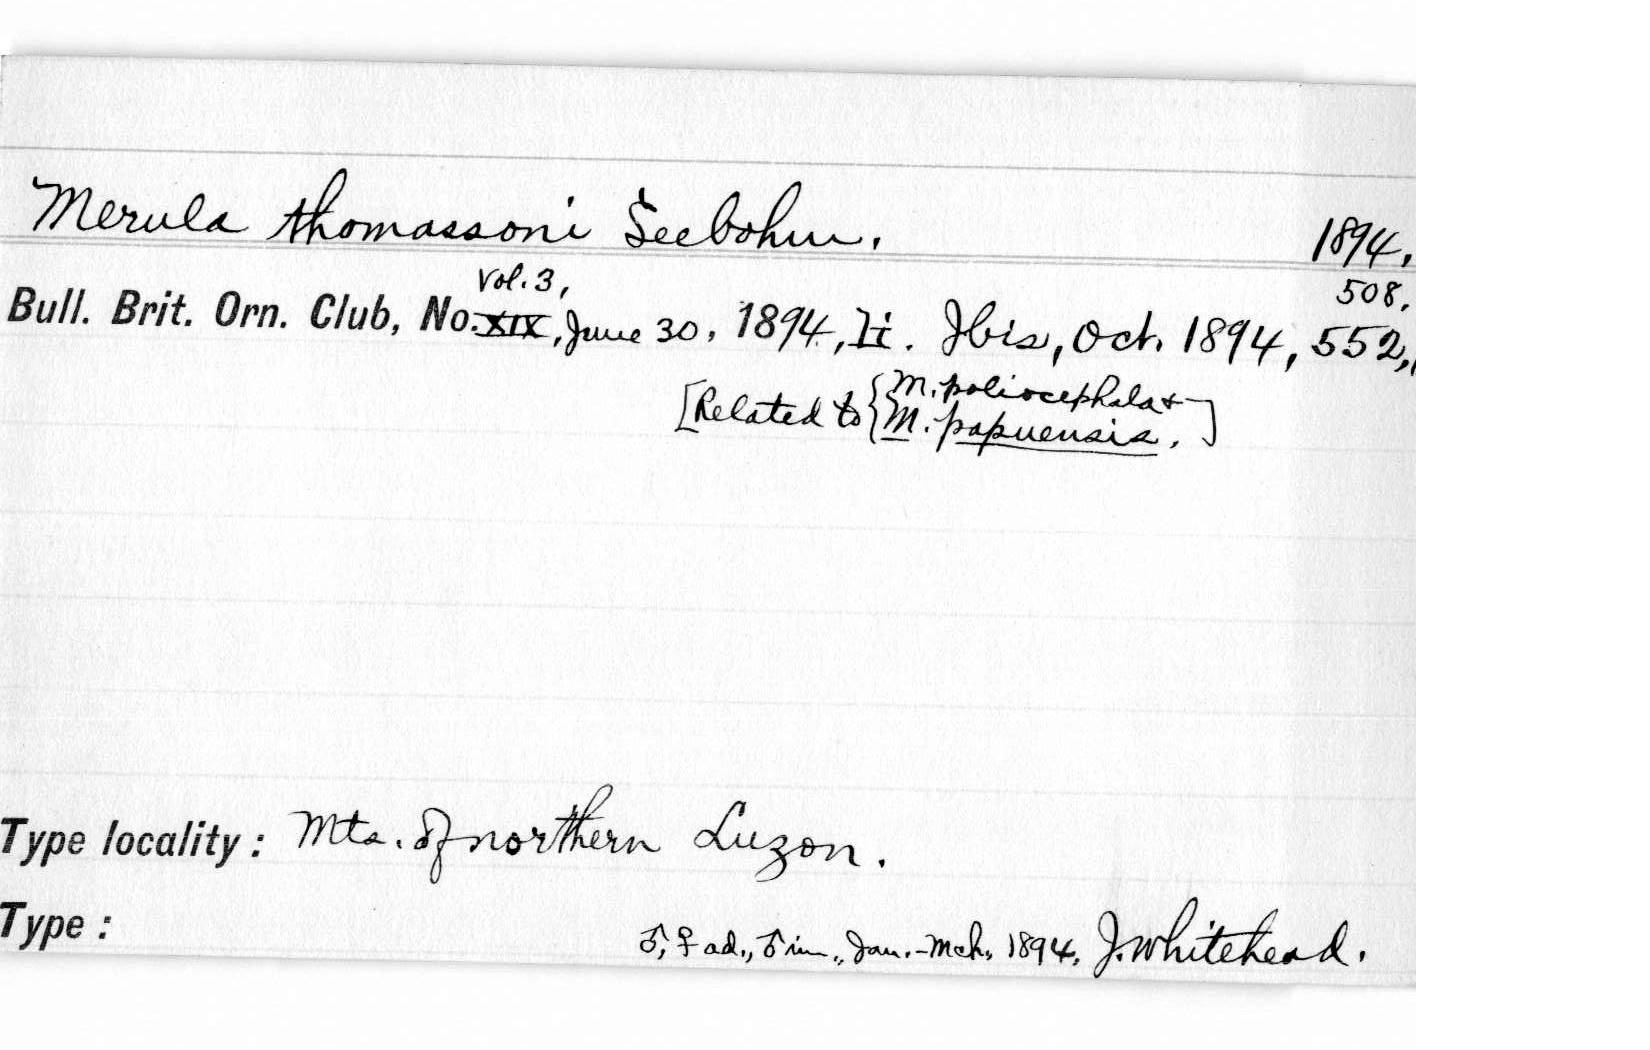 Merula thomassoni Seebohm. 1894.
Vol. 3, 508.
Bull. Brit. Orn. Club, No. XIX, June 30, 1894, li. Ibis, Oct. 1894, 552,
[Related to { M. poliocephala &
M. papuensis. ]
Type locality : Mts. of northern Luzon.
Type :
♂, ♀ ad., ♂ im., Jan.-Mch. 1894, J. Whitehead.